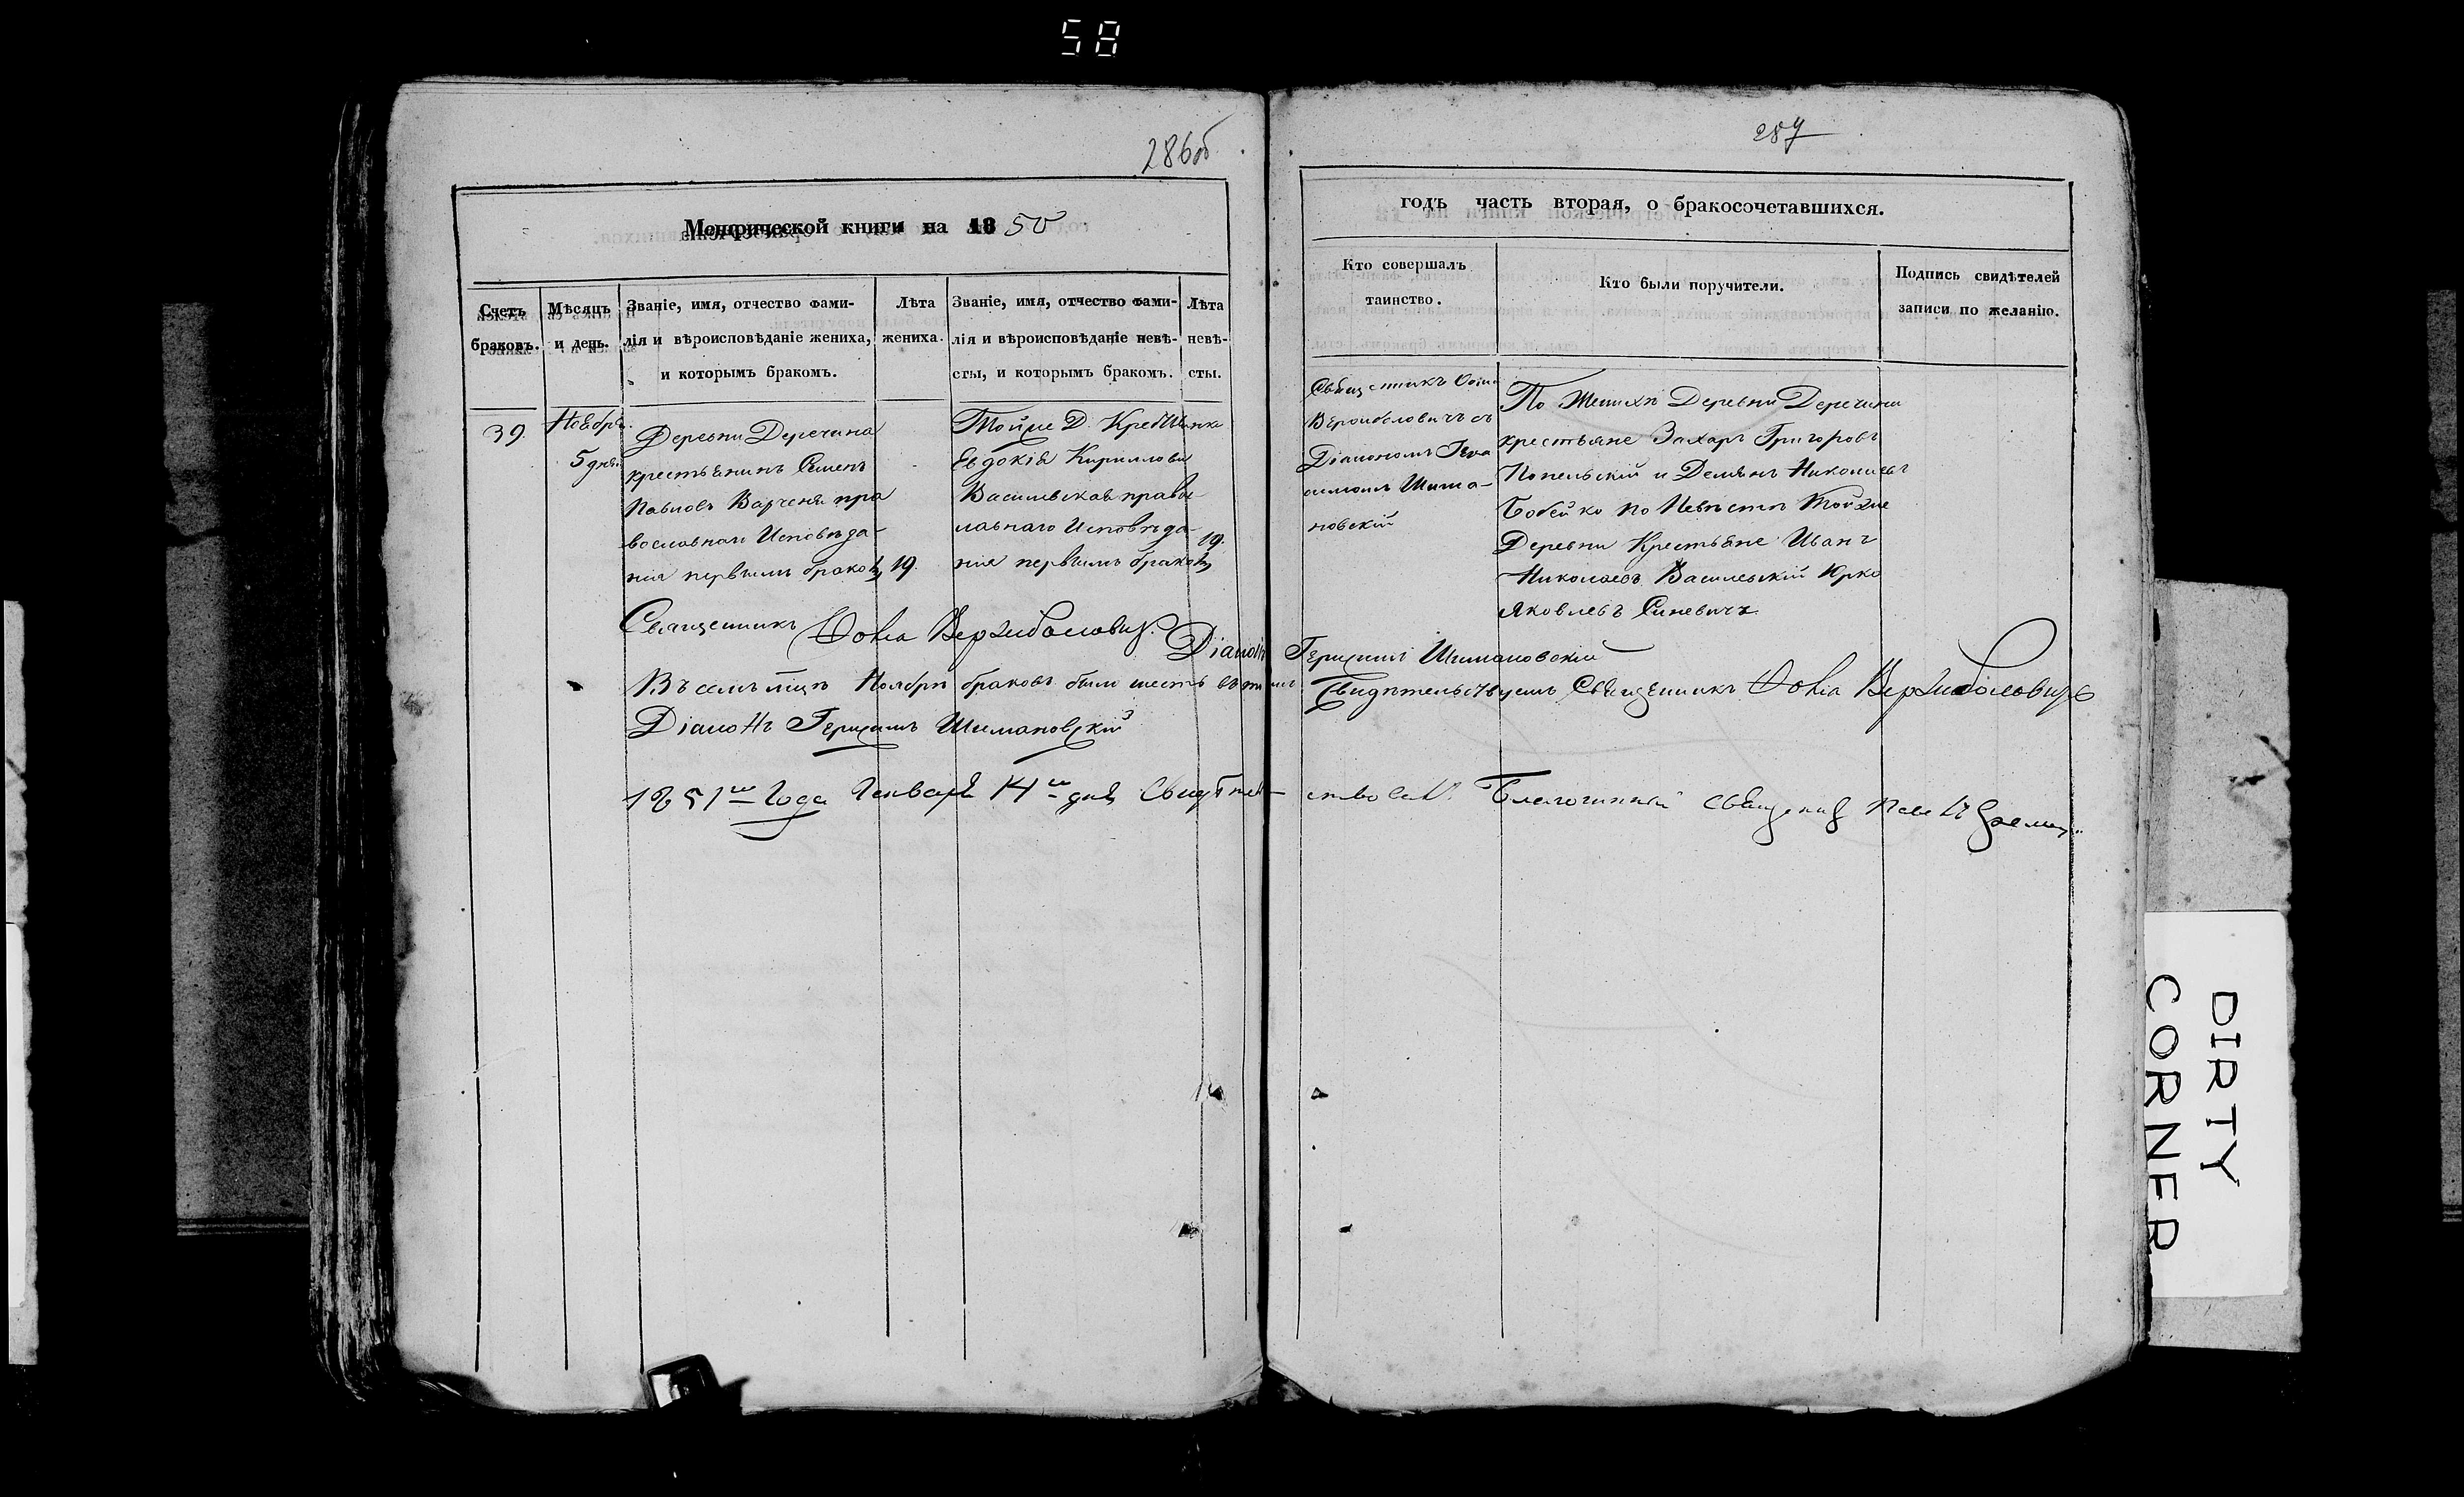 58
286об
287
Метрической книги на 1850
годъ часть вторая, о бракосочетавшихся.
Счетъ браковъ.
Мѣсяцъ и день.
Званіе, имя, отчество фами-
лія и вѣроисповѣданіе жениха,
и которымъ бракомъ.
Лѣта
жениха.
Званіе, имя, отчество фами-
лія и вѣроисповѣданіе невѣ-
сты, и которымъ бракомъ.
Лѣта
невѣ-
сты.
Кто совершалъ
таинство.
Кто были поручители.
Подпись свидѣтелей
записи по желанію.
39.
Ноябрь.
5 дня
Деревни Деречина
крестьянинъ Семенъ
Павловъ Варченя пра
вославнаго Исповѣда-
нія первымъ бракомъ
19.
Тойже Д. Крестьянка
Евдокія Кириллова
Василевская правос
лавнаго Исповѣда-
нія первымъ бракомъ
19.
Священникъ Фома
Вержболовичъ съ
Діакономъ Гера
симомъ Шима-
новскій
По Женихѣ Деревни Деречина
крестьяне Захаръ Григоровъ
Попельскій и Демьянъ Николаевъ
Бобейко по Невѣстѣ Тойже
Деревни Крестьяне Иванъ
Николаевъ Василевскій Юрко
Яковлевъ Синевичъ
Священникъ Фома Вержболовичъ.
Діаконъ Герасимъ Шимановскій
Въ семъ мцѣ Ноябрѣ браковъ было шесть въ томъ Свидѣтельствуемъ Священникъ Фома Вержболовичъ
Діаконъ Герасимъ Шимановскій
1851го Года Генваря 14го дня Свидѣтель-ствовалъ Благочинный Священникъ
DIRTY
CORNER